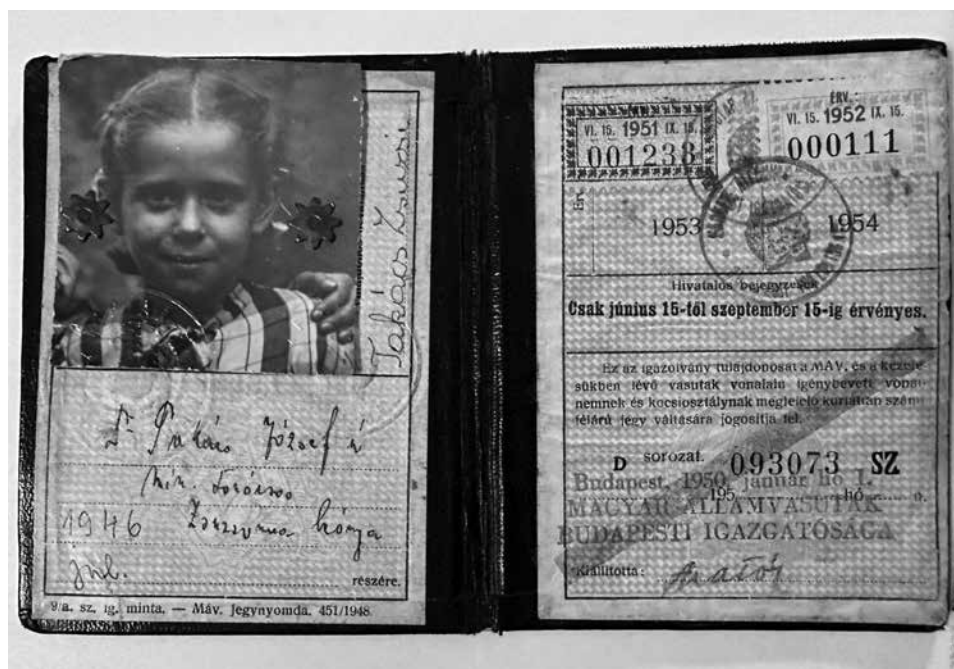 Takács Zsuzsi
Dr Takács József
min.
1946 Zsuzsanna
júl.
részére.
9/a. sz. ig. minta. — Máv. Jegynyomda. 451/1948.
VI. 15. 1951 IX. 15.
001238
ÉRV.:
VI. 15. 1952 IX. 15.
000111
Érv.
1953
1954
Hivatalos bejegyzések
Csak június 15-től szeptember 15-ig érvényes.
Ez az igazolvány tulajdonosát a MÁV. és a kezelé-
sükben lévő vasutak vonalain igénybevett vonat-
nemnek és kocsiosztálynak megfelelő korlátlan számú
félárú jegy váltására jogosítja fel.
D sorozat. 093073 SZ
Budapest, 1950. január hó 1.
195 hó n.
MAGYAR ÁLLAMVASUTAK
BUDAPESTI IGAZGATÓSÁGA
Kiállította: